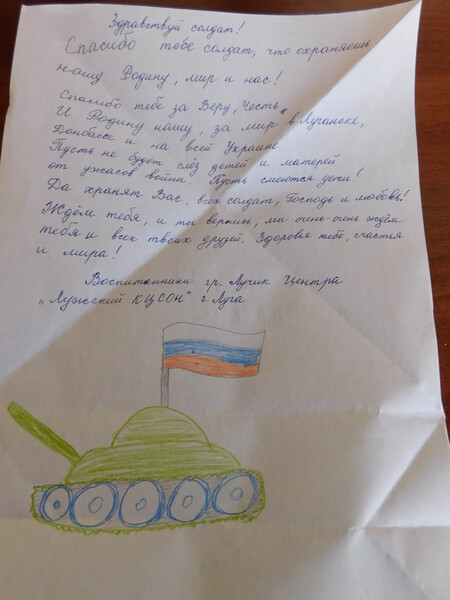 Здравствуй солдат!
Спасибо тебе солдат, что охраняешь
нашу Родину, мир и нас!
Спасибо тебе за Веру, Честь
И Родину нашу, за мир в Луганске,
Донбассе и на всей Украине.
Пусть не будет слёз детей и матерей
от ужасов войны. Пусть смеются дети!
Да хранят Вас, всех солдат, Господь и любовь!
Ждём тебя, и ты вернись, мы очень-очень ждём
тебя и всех твоих друзей. Здоровья тебе, счастья
и мира!
Воспитанники гр. Лучик Центра
„Лужский КЦСОН" г. Луга